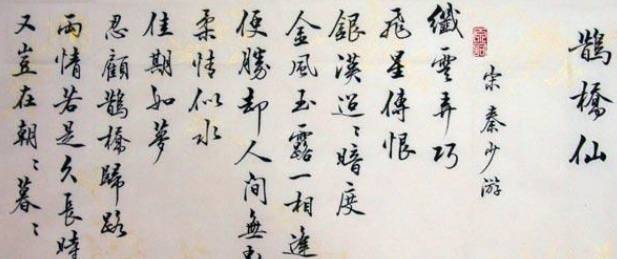 鵲橋仙
宋 秦少游
纖雲弄巧
飛星傳恨
銀漢迢〻暗度
金風玉露一相逢
便勝却人间無
柔情似水
佳期如夢
忍顧鵲橋歸路
兩情若是久長時
又豈在朝〻暮〻